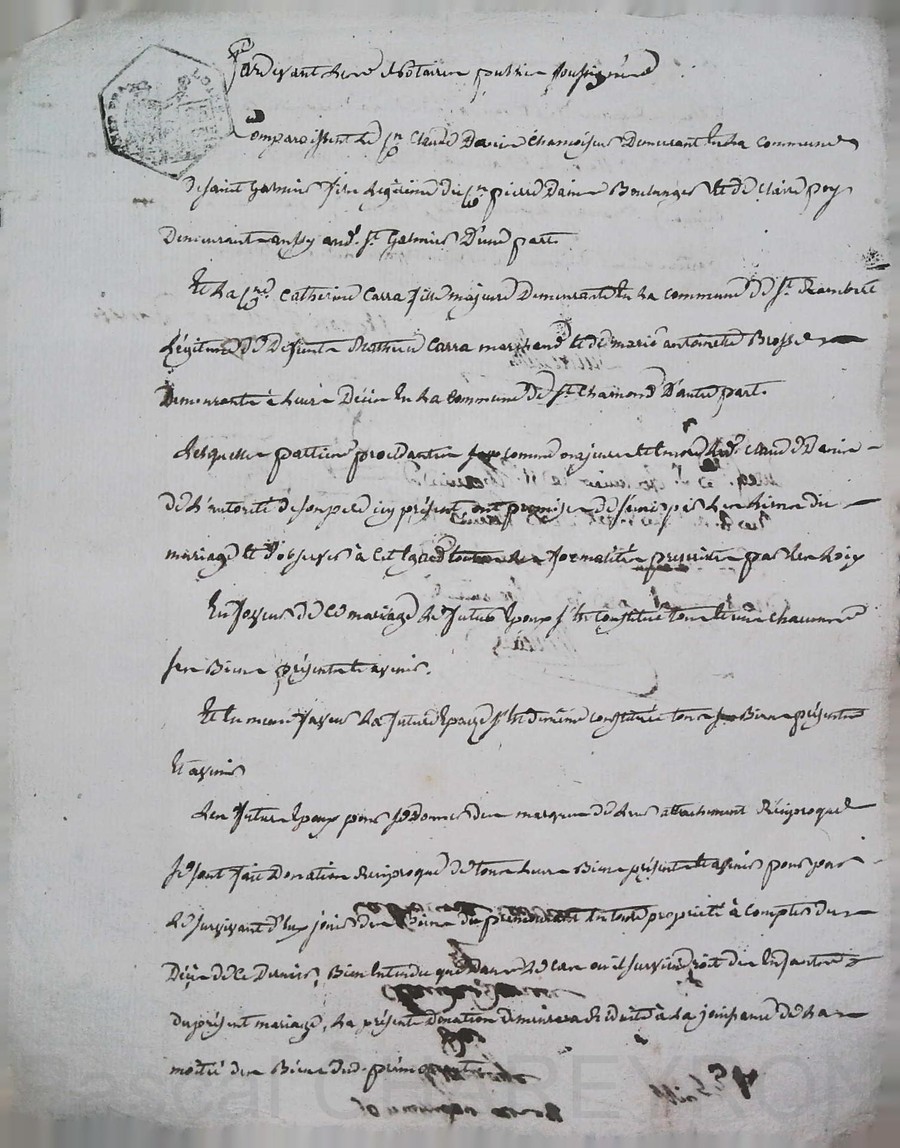 Pardevant Les Notaires publics soussignés
Comparoissent le Cn Claude Danie Chamoiseur Demeurant En la commune
de saint Galmier fils Légitime du Cn pierre Danie Boulanger Et de Claire poy
Demeurant aussy aud. St Galmier D'une part
Et La Cne Catherine Carra fille majeure Demeurante En La commune de St Rambert
Légitime de Defunt Mathieu Carra marchand Et de marie antoinete Brosse
Demeurante à Leure Décès En La Commune de St Chamond D'autre part.
Lesquelles parties procedantes comme majeures Et Led. Claude Danie
de L'autorité de son pere icy présent, ont promis de s'unir par Les Liens du
mariage Et D'observer à cet Egard toutes Les formalités prescrites par Les Loix
En faveur de ce mariage Le futur Epoux s'est Constitué tous Et uns chacuns
ses Biens présents Et avenir.
Et En meme faveur La future Epouse s'est de même constituée tous ses Biens présents
Et avenir
Les futurs Epoux pour se donner des marques de Leur attachement Réciproque
se sont fait Donation Réciproque de tous Leurs Biens présents Et avenir pour par
Le survivant d'Eux jouir des Biens du prémourant En toute propriété à Compter du
Décès de ce Dernier, Bien Entendu que Dans Le cas ou il surviendroit des Enfants
du présent mariage, La présente Donation demeurera Réduite à La jouissance de La
moitié des Biens dud. prémourant
Pascal CHAREYRON